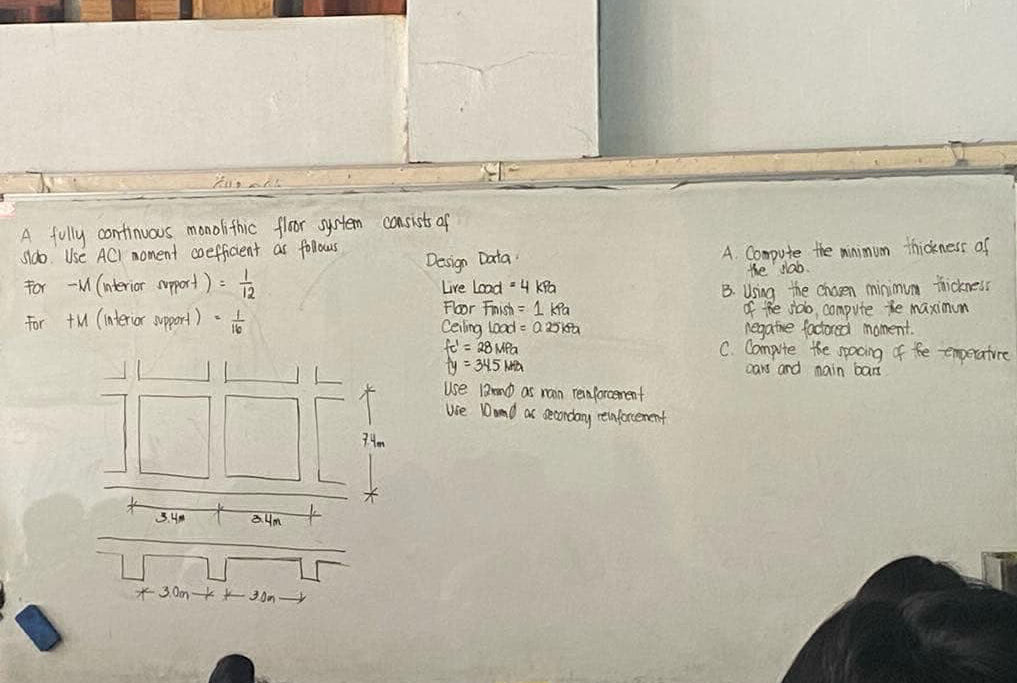 A fully continuous monolithic floor system consists of
slab. Use ACI moment coefficient as follows
For -M (interior support) = 1/12
For +M (interior support) = 1/16
7.4m
3.4m
3.4m
3.0m
3.0m
Design Data:
Live Load = 4 kPa
Floor Finish = 1 kPa
Ceiling Load = 0.25 kPa
fc' = 28 MPa
fy = 345 MPa
Use 12mmØ as main reinforcement
Use 10mmØ as secondary reinforcement
A. Compute the minimum thickness of
the slab.
B. Using the chosen minimum thickness
of the slab, compute the maximum
negative factored moment.
C. Compute the spacing of the temperature
bars and main bars